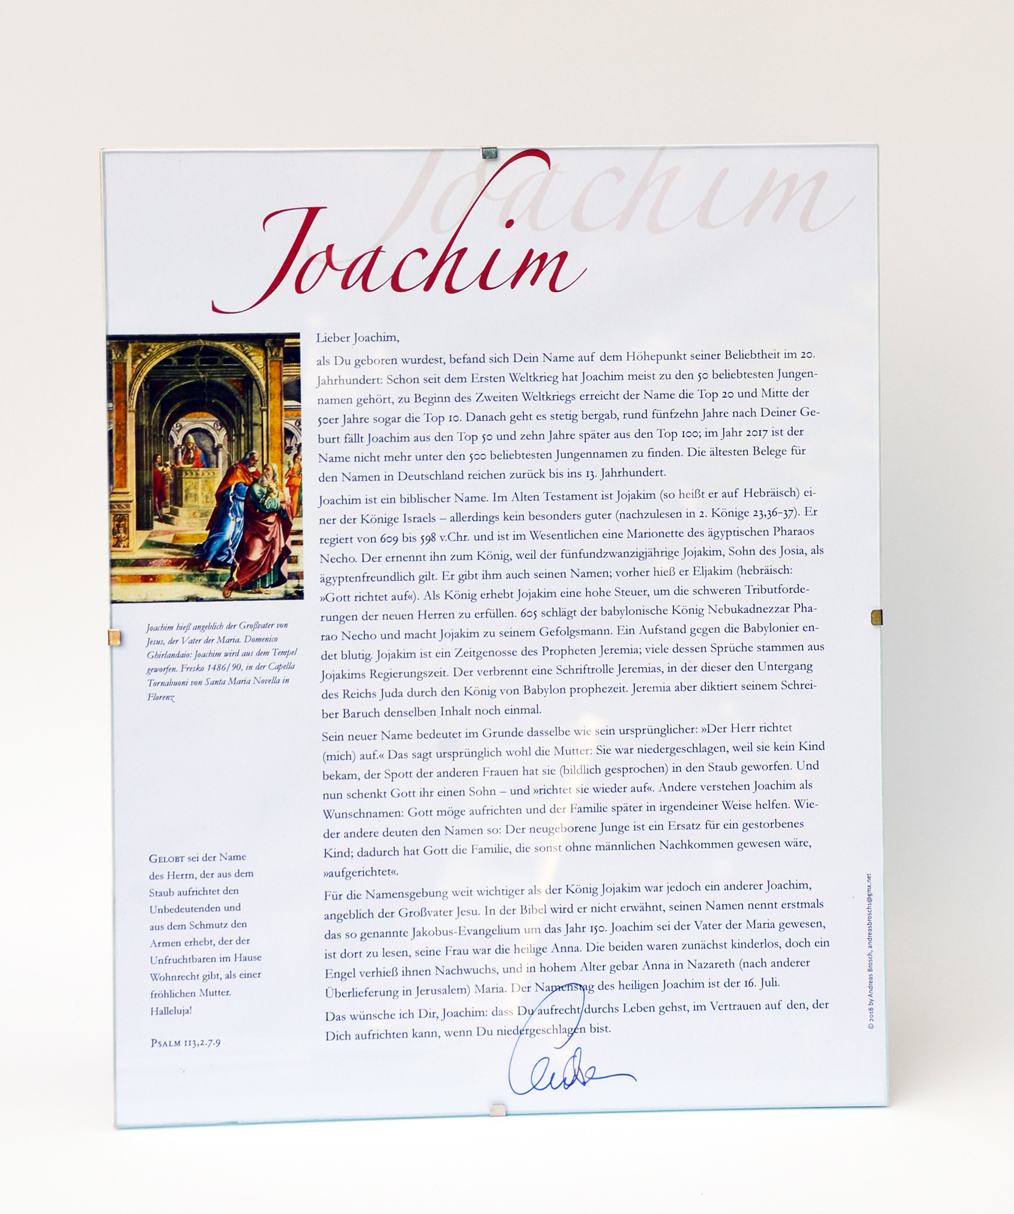 Joachim
Joachim
Lieber Joachim,
als Du geboren wurdest, befand sich Dein Name auf dem Höhepunkt seiner Beliebtheit im 20.
Jahrhundert: Schon seit dem Ersten Weltkrieg hat Joachim meist zu den 50 beliebtesten Jungen-
namen gehört, zu Beginn des Zweiten Weltkriegs erreicht der Name die Top 20 und Mitte der
50er Jahre sogar die Top 10. Danach geht es stetig bergab, rund fünfzehn Jahre nach Deiner Ge-
burt fällt Joachim aus den Top 50 und zehn Jahre später aus den Top 100; im Jahr 2017 ist der
Name nicht mehr unter den 500 beliebtesten Jungennamen zu finden. Die ältesten Belege für
den Namen in Deutschland reichen zurück bis ins 13. Jahrhundert.
Joachim ist ein biblischer Name. Im Alten Testament ist Jojakim (so heißt er auf Hebräisch) ei-
ner der Könige Israels – allerdings kein besonders guter (nachzulesen in 2. Könige 23,36–37). Er
regiert von 609 bis 598 v.Chr. und ist im Wesentlichen eine Marionette des ägyptischen Pharaos
Necho. Der ernennt ihn zum König, weil der fünfundzwanzigjährige Jojakim, Sohn des Josia, als
ägyptenfreundlich gilt. Er gibt ihm auch seinen Namen; vorher hieß er Eljakim (hebräisch:
»Gott richtet auf«). Als König erhebt Jojakim eine hohe Steuer, um die schweren Tributforde-
rungen der neuen Herren zu erfüllen. 605 schlägt der babylonische König Nebukadnezzar Pha-
rao Necho und macht Jojakim zu seinem Gefolgsmann. Ein Aufstand gegen die Babylonier en-
det blutig. Jojakim ist ein Zeitgenosse des Propheten Jeremia; viele dessen Sprüche stammen aus
Jojakims Regierungszeit. Der verbrennt eine Schriftrolle Jeremias, in der dieser den Untergang
des Reichs Juda durch den König von Babylon prophezeit. Jeremia aber diktiert seinem Schrei-
ber Baruch denselben Inhalt noch einmal.
Sein neuer Name bedeutet im Grunde dasselbe wie sein ursprünglicher: »Der Herr richtet
(mich) auf.« Das sagt ursprünglich wohl die Mutter: Sie war niedergeschlagen, weil sie kein Kind
bekam, der Spott der anderen Frauen hat sie (bildlich gesprochen) in den Staub geworfen. Und
nun schenkt Gott ihr einen Sohn – und »richtet sie wieder auf«. Andere verstehen Joachim als
Wunschnamen: Gott möge aufrichten und der Familie später in irgendeiner Weise helfen. Wie-
der andere deuten den Namen so: Der neugeborene Junge ist ein Ersatz für ein gestorbenes
Kind; dadurch hat Gott die Familie, die sonst ohne männlichen Nachkommen gewesen wäre,
»aufgerichtet«.
Für die Namensgebung weit wichtiger als der König Jojakim war jedoch ein anderer Joachim,
angeblich der Großvater Jesu. In der Bibel wird er nicht erwähnt, seinen Namen nennt erstmals
das so genannte Jakobus-Evangelium um das Jahr 150. Joachim sei der Vater der Maria gewesen,
ist dort zu lesen, seine Frau war die heilige Anna. Die beiden waren zunächst kinderlos, doch ein
Engel verhieß ihnen Nachwuchs, und in hohem Alter gebar Anna in Nazareth (nach anderer
Überlieferung in Jerusalem) Maria. Der Namenstag des heiligen Joachim ist der 16. Juli.
Das wünsche ich Dir, Joachim: dass Du aufrecht durchs Leben gehst, im Vertrauen auf den, der
Dich aufrichten kann, wenn Du niedergeschlagen bist.
Joachim hieß angeblich der Großvater von
Jesus, der Vater der Maria. Domenico
Ghirlandaio: Joachim wird aus dem Tempel
geworfen. Fresko 1486/90, in der Capella
Tornabuoni von Santa Maria Novella in
Florenz
GELOBT sei der Name
des Herrn, der aus dem
Staub aufrichtet den
Unbedeutenden und
aus dem Schmutz den
Armen erhebt, der der
Unfruchtbaren im Hause
Wohnrecht gibt, als einer
fröhlichen Mutter.
Halleluja!
PSALM 113,2.7.9
© 2018 by Andreas Brosch, andreasbrosch@gmx.net